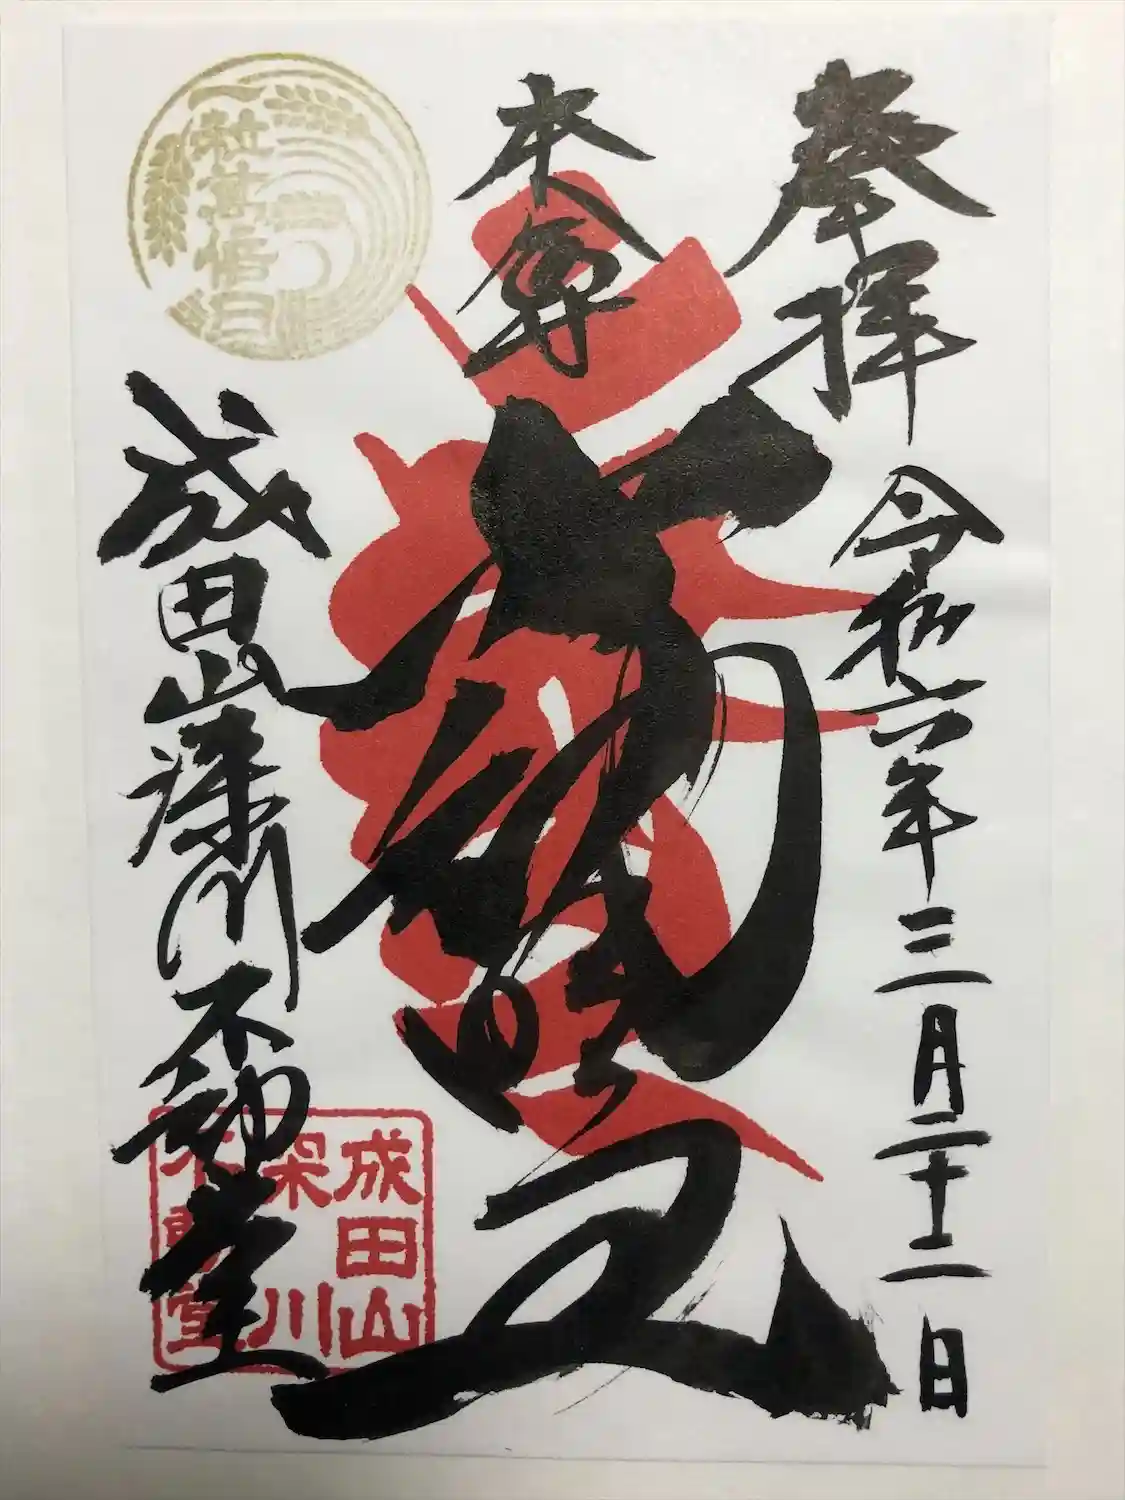 奉拝 令和六年三月二十二日
本尊
不動明王
成田山深川不動堂
一粒萬倍日
成田山
深川
不動堂